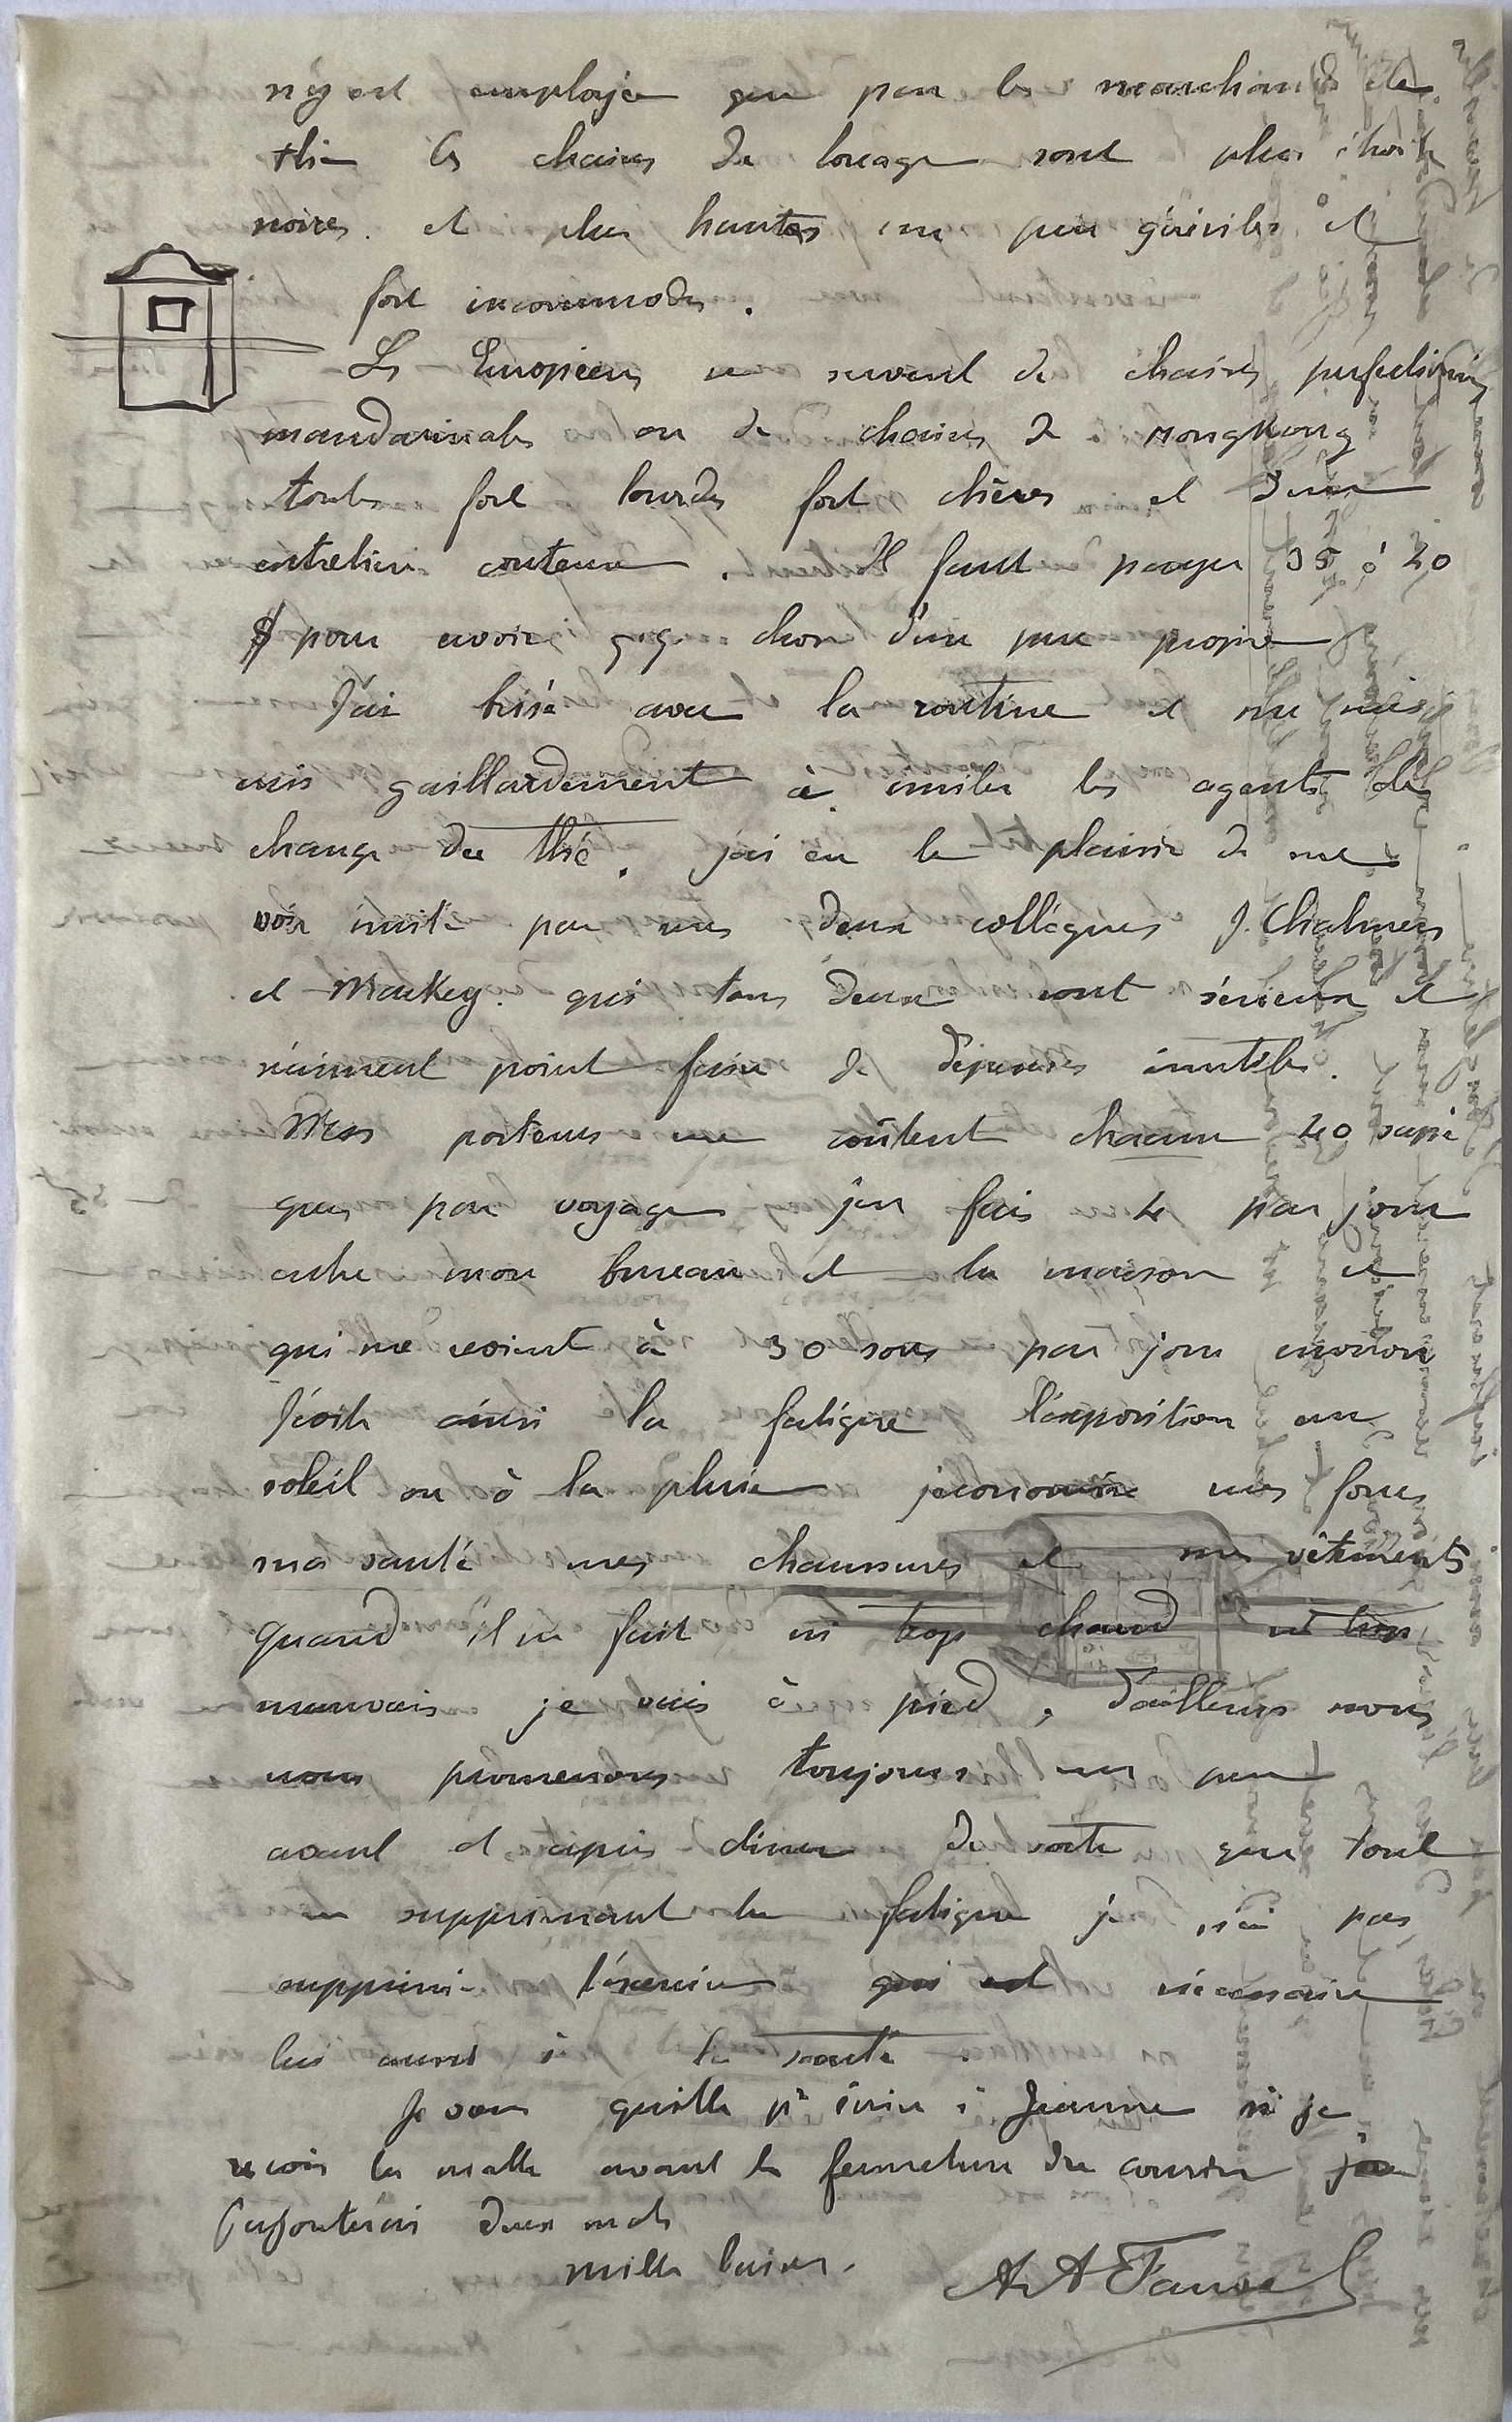 n'y est employée que par les marchands de
thé les chaises de louage sont plus étroites
noires et plus hautes un peu
fort incommodes.
Les Européens se servent de chaises perfectionnées
mandarinales ou de chaises de Hong Kong
toutes fort lourdes fort chères et d'un
entretien couteux. Il faut payer 35 à 40
$ pour avoir qq chose d'un peu propre
J'ai brisé avec la routine et me suis
mis gaillardement à imiter les agents de
change du thé. j'ai eu le plaisir de me
voir imité par mes deux collègues J. Chalmers
et Mackey. qui tous deux sont sérieux et
n'aiment point faire de dépenses inutiles.
Mes porteurs me coûtent chacun 40 sapè
ques par voyage j'en fais 4 par jour
entre mon bureau et la maison ce
qui me revient à 30 sous par jour environ
J'évite ainsi la fatigue l'exposition au
soleil ou à la pluie j'économise mes forces
ma santé mes chaussures et mes vêtements
quand il ne fait ni trop chaud ni trop
mauvais je vais à pied, d'ailleurs nous
nous promenons toujours un peu
avant et après diner de sorte que tout
en supprimant la fatigue je n'ai pas
supprimé l'exercice qui est nécessaire
lui aussi à la santé.
Je vous quitte pr écrire à Jeanne si je
reçois la malle avant la fermeture du courrier
j'ajouterais deux mots
mille baisers.
A A Fauvel